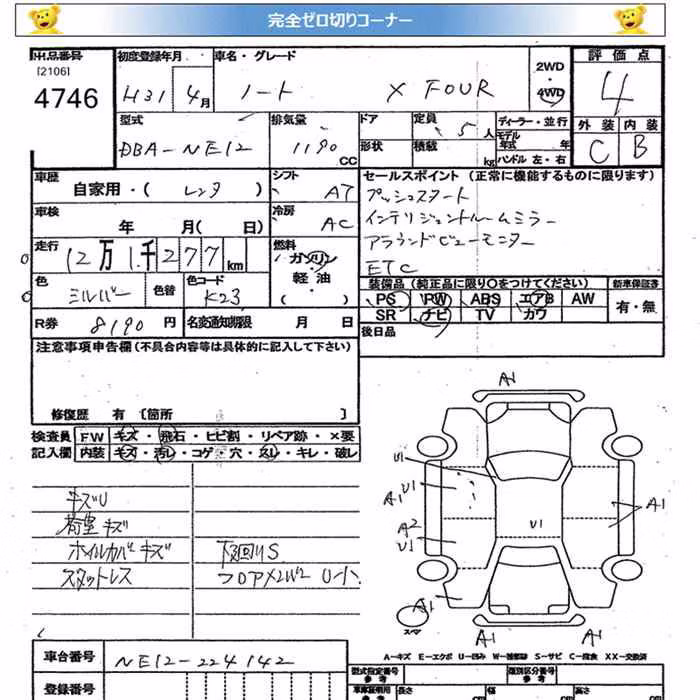 完全ゼロ切りコーナー
出品番号 [2106] 4746
初度登録年月 H31 4月
車名・グレード ノート X FOUR
2WD・4WD
評価点 4
外装 C 内装 B
型式 DBA-NE12
排気量 1190 CC
ドア 形状
定員 5人
積載 kg
ディーラー・並行
モデル年式 年
ハンドル 左・右
車歴 自家用・( レンタ )
シフト AT
車検 年 月( 日)
冷房 AC
走行 12万1千277 km
燃料 ガソリン・軽油・
色 シルバー 色替
色コード K23
R券 8190 円
名変通知期限 月 日
セールスポイント (正常に機能するものに限ります)
プッシュスタート
インテリジェントルームミラー
アラウンドビューモニター
ETC
装備品 (純正品に限り○をつけてください)
新車保証書
PS PW ABS エアB AW
有・無
SR ナビ TV カワ
後日品
注意事項申告欄(不具合内容等は具体的に記入して下さい)
修復歴 有 [箇所 ]
検査員記入欄
FW キズ・飛石・ヒビ割・リペア跡・×要
内装 キズ・汚レ・コゲ・穴・スレ・キレ・破レ
キズU
荷室キズ
ホイルカバーキズ 下回りS
スタットレス
A1
U1
A1 U1
A1
A2
U1
U1
A1
A1
A1
スマ
A-キズ E-エクボ U-凹み S-サビ C-腐食 XX-交換済
車台番号 NE12-224142
型式指定番号 参考
類別区分番号 参考
登録番号
車庫証明用 参考
長さ
幅
高さ